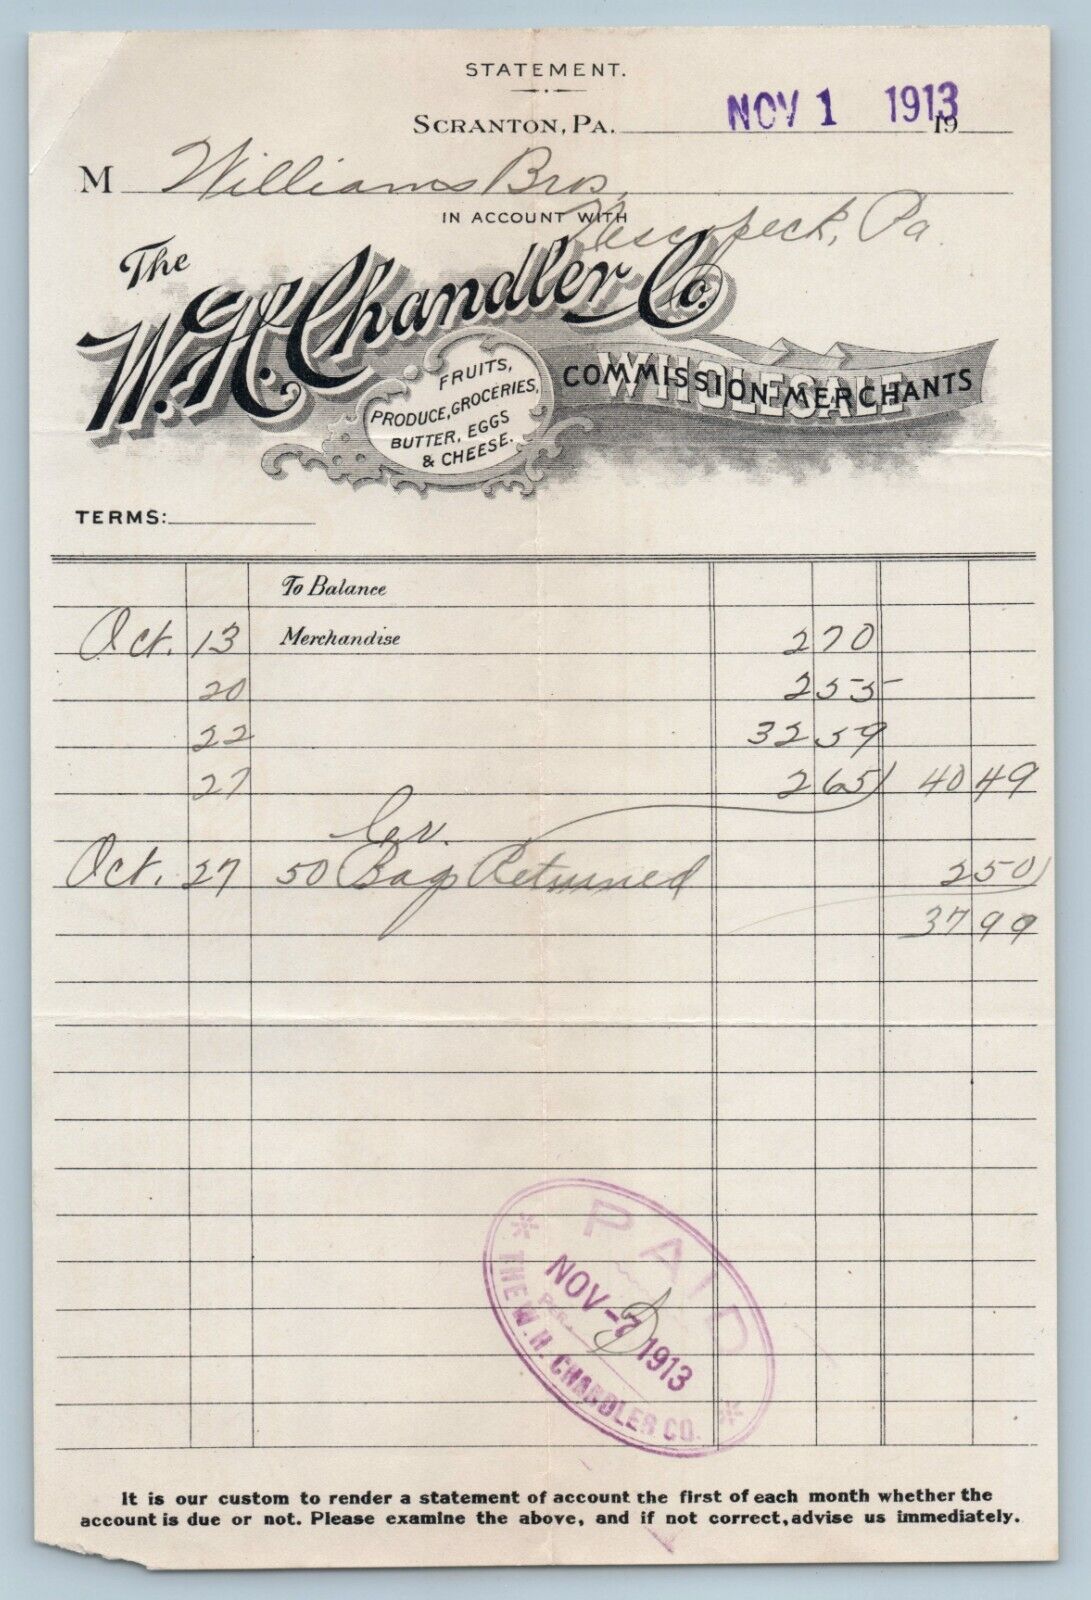 STATEMENT.
SCRANTON, PA. NOV 1 1913 19
M Williams Bros.
IN ACCOUNT WITH
Nescopeck, Pa.
The
W. H. Chandler Co.
WHOLESALE
COMMISSION MERCHANTS
FRUITS,
PRODUCE, GROCERIES,
BUTTER, EGGS
& CHEESE.
TERMS:
To Balance
Oct. 13 Merchandise 2 70
20 2 55
22 32 59
27 2 65 40 49
Cr.
Oct. 27 50 Bags Returned 2 50
37 99
PAID
NOV -7 1913
PER
THE W. H. CHANDLER CO.
It is our custom to render a statement of account the first of each month whether the
account is due or not. Please examine the above, and if not correct, advise us immediately.